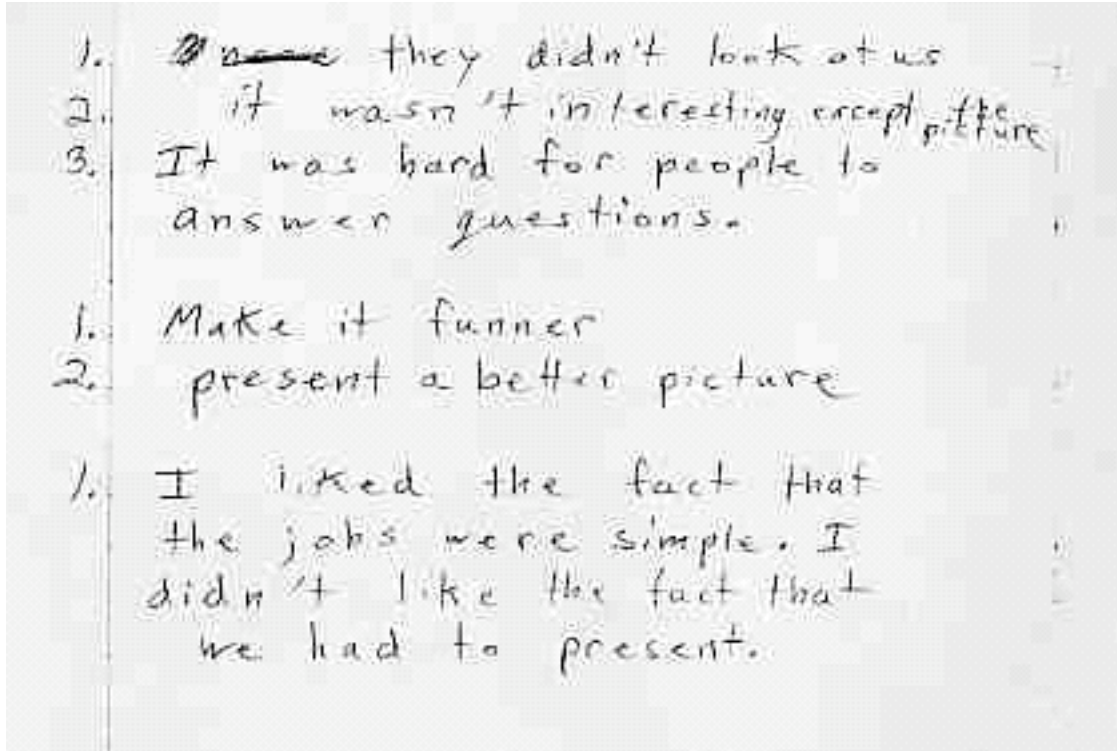 1. they didn't look at us
2. it wasn't interesting except the picture
3. It was hard for people to
answer questions.
1. Make it funner
2. present a better picture
1. I liked the fact that
the jobs were simple. I
didn't like the fact that
we had to present.